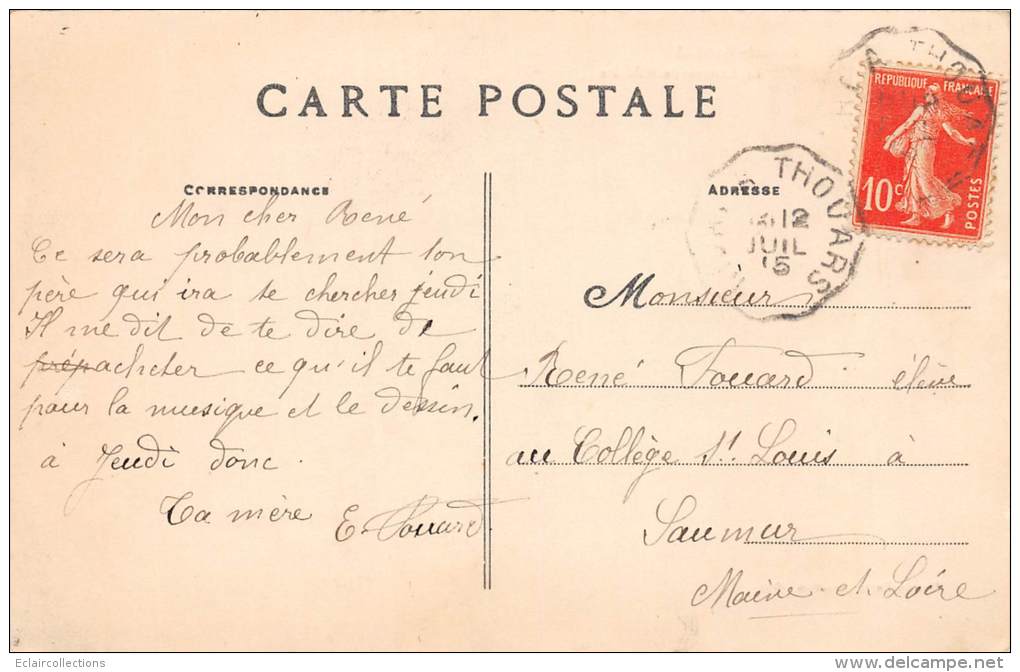 CARTE POSTALE
CORRESPONDANCE
Mon cher René
Ce sera probablement ton
père qui ira te chercher jeudi
Il me dit de te dire de
prépacheter ce qu'il te faut
pour la musique et le dessin.
à Jeudi donc.
Ta mère E. Fouard.
ADRESSE
RÉPUBLIQUE FRANÇAISE
10c
POSTES
THOUARS
12
JUIL
15
THOUARS
Monsieur
René Fouard élève
au Collège St. Louis à
Saumur
Maine et Loire
Eclaircollections
www.delcampe.net